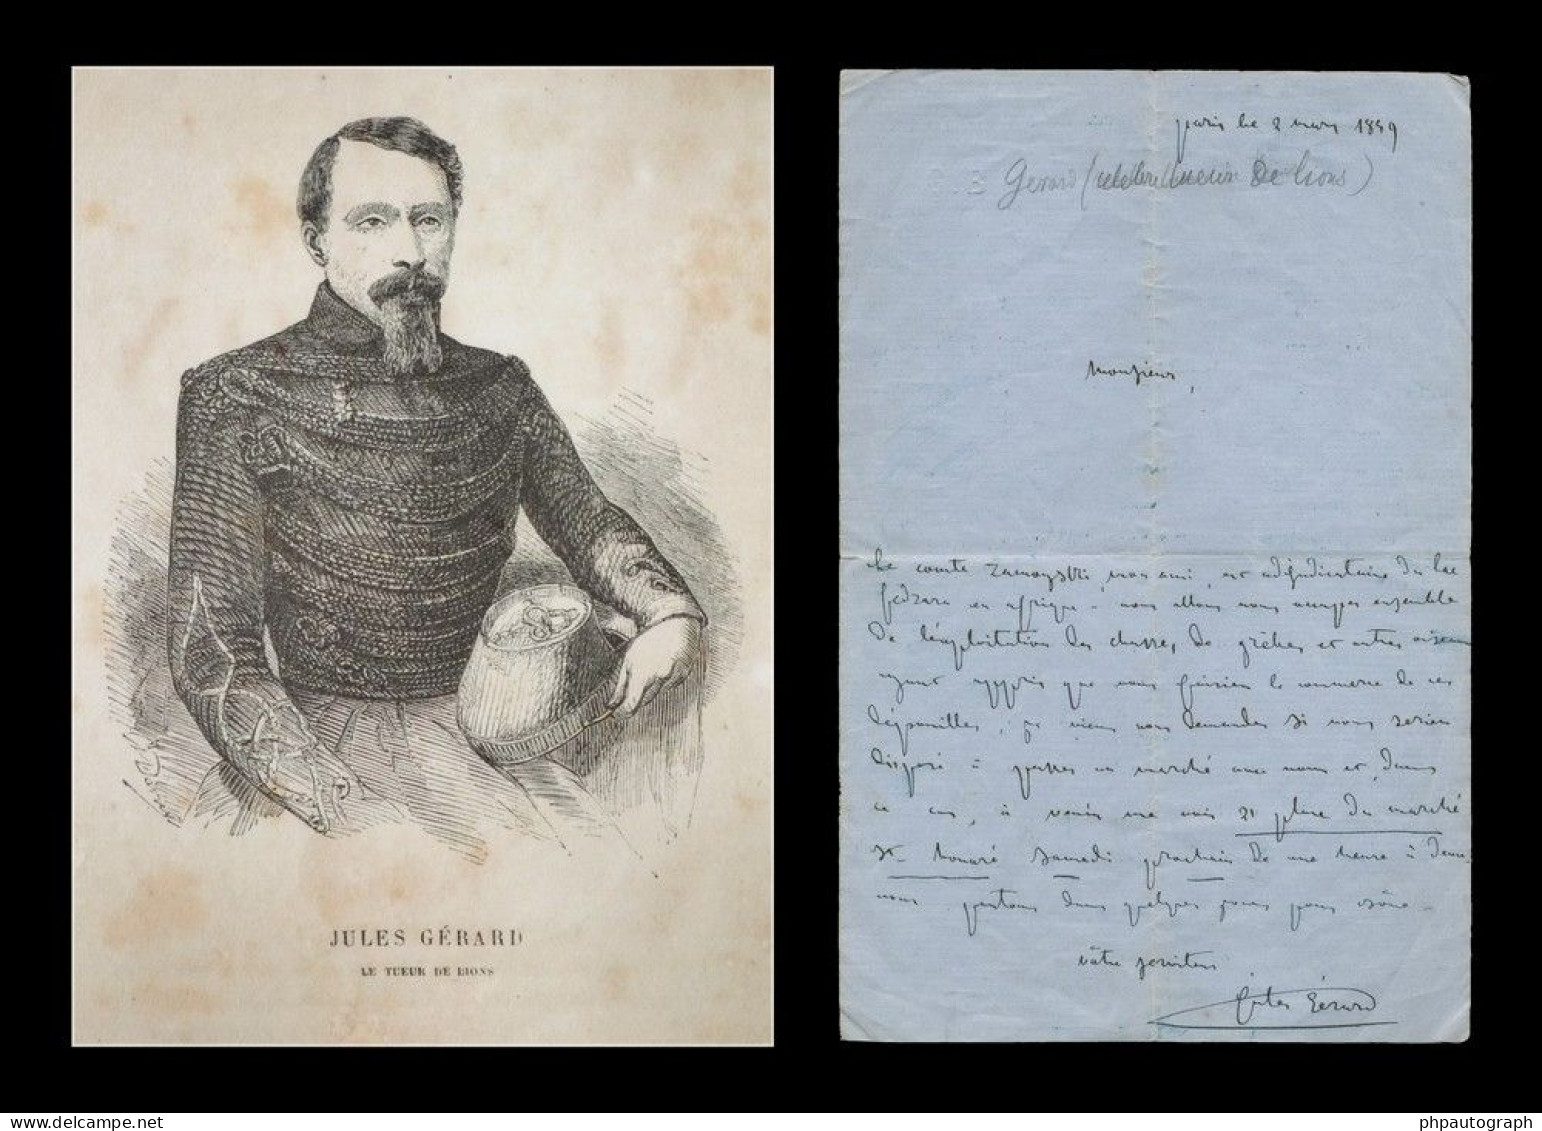 JULES GÉRARD
LE TUEUR DE LIONS
paris le 2 mars 1859
Gerard (célèbre tueur De lions)
Monsieur,
Le comte Zamoyski, mon ami, est adjudicataire du lac
fedzara en afrique - nous allons nous occuper ensemble
De l'exploitation des chasses, de grèbes et autres oiseaux
ayant appris que vous faisiez le commerce de ces
dépouilles, je viens vous demander si vous seriez
disposé à passer un marché avec nous et, dans
ce cas, à venir me voir 21 place du marché
st honoré samedi prochain De une heure à deux
nous partons dans quelques jours pour
votre serviteur
Jules Gérard
delcampe.net
phpautograph